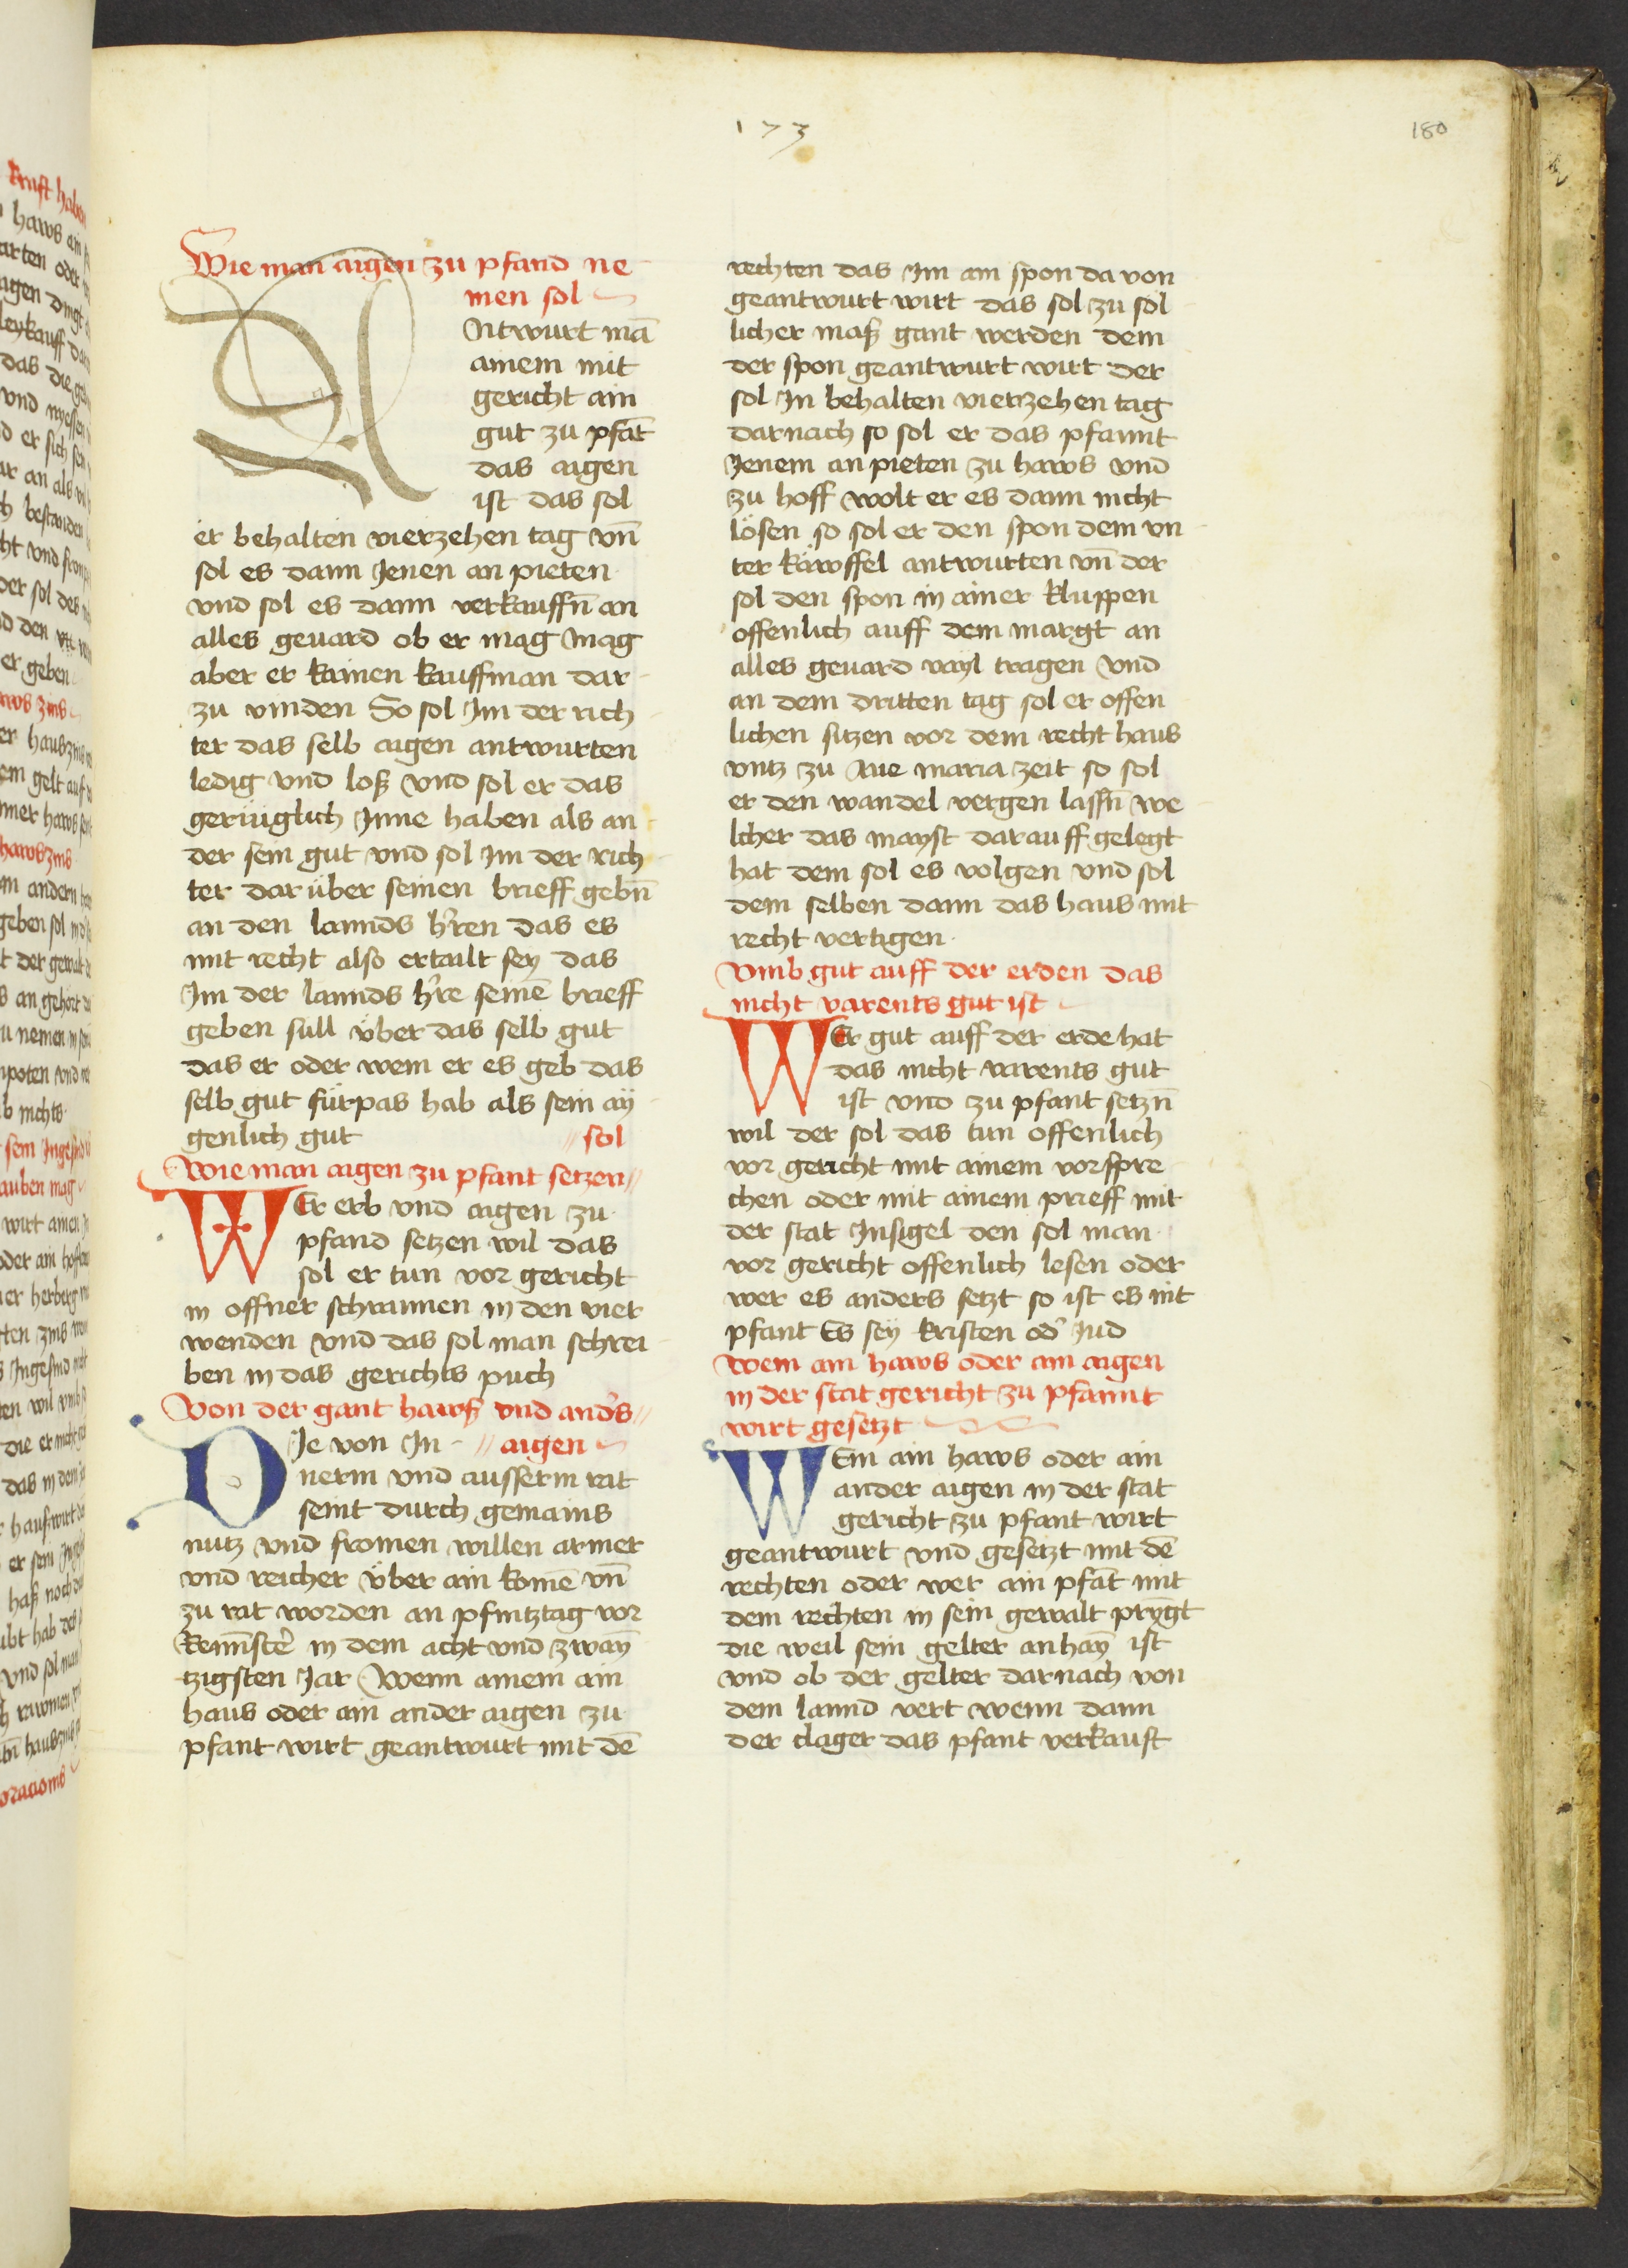 173
180
Wie man aigen zu pfand ne
men sol
Antwurt mā
ainem mit
gericht ain
gut zu pfāt
das aigen
ist das sol
er behalten vierzehen tag vn̄
sol es dann Jenen an pieten
vnd sol es dann verkauffn̄ an
alles geuard ob er mag Mag
aber er kainen kauffman dar
zu vinden So sol Jm der rich
ter das selb aigen antwurten
ledig vnd loß vnd sol er das
gerüglich Jnne haben als an
der sein gut vnd sol Jm der rich
ter dar über seinen brieff gebn̄
an den lannds h'ren das es
mit recht also ertailt sey das
Jm der lannds h're seinē brieff
geben süll über das selb gut
das er oder wem er es geb das
selb gut fürpas hab als sein aÿ
genlich gut
sol
Wie man aigen zu pfant setzen
WEr erb vnd aigen zu
pfand setzen wil das
sol er tun vor gericht
in offner schrannen in den vier
wenden vnd das sol man schrei
ben in das gerichts puch
Von der gant hawß vnd and's
aigen
DJe von Jn
nerm vnd ausserm rat
seint durch gemains
nutz vnd fromen willen armer
vnd reicher über ain komē vn̄
zu rat worden an pfintztag vor
Remīstē in dem acht vnd zwaÿ
tzigsten Jar Wenn ainem ain
haus oder ain ander aigen zu
pfant wirt geantwurt mit dē
rechten das Jm ain spon da von
geantwurt wirt das sol zu sol
licher maß gant werden dem
der spon geantwurt wirt der
sol Jn behalten vierzehen tag
darnach so sol er das pfannt
Jenem an pieten zu haws vnd
zu hoff wolt er es dann nicht
lösen so sol er den spon dem vn
ter käwffel antwurten vn̄ der
sol den spon in ainer kluppen
offenlich auff dem margt an
alles geuard vayl tragen vnd
an dem dritten tag sol er offen
lichen sitzen vor dem recht haus
vntz zu Aue maria zeit so sol
er den wandel vergen lassn̄ we
lcher das mayst darauff gelegt
hat dem sol es volgen vnd sol
dem selben dann das haus mit
recht vertigen
Vmb gut auff der erden das
nicht varents gut ist
WEr gut auff der erde hat
das nicht varents gut
ist vnd zu pfant setzn̄
wil der sol das tun offenlich
vor gericht mit ainem vorspre
chen oder mit ainem prieff mit
der stat Jnsigel den sol man
vor gericht offenlich lesen oder
wer es anders setzt so ist es nit
pfant Es sey kristen od' Jud
Wem ain haws oder ain aigen
in der stat gericht zu pfannt
wirt gesetzt
WEm ain haws oder ain
ander aigen in der stat
gericht zu pfant wirt
geantwurt vnd gesetzt mit dē
rechten oder wer ain pfāt mit
dem rechten in sein gewalt prīgt
die weil sein gelter anhaÿ ist
vnd ob der gelter darnach von
dem lannd vert wenn dann
der clager das pfant verkauft